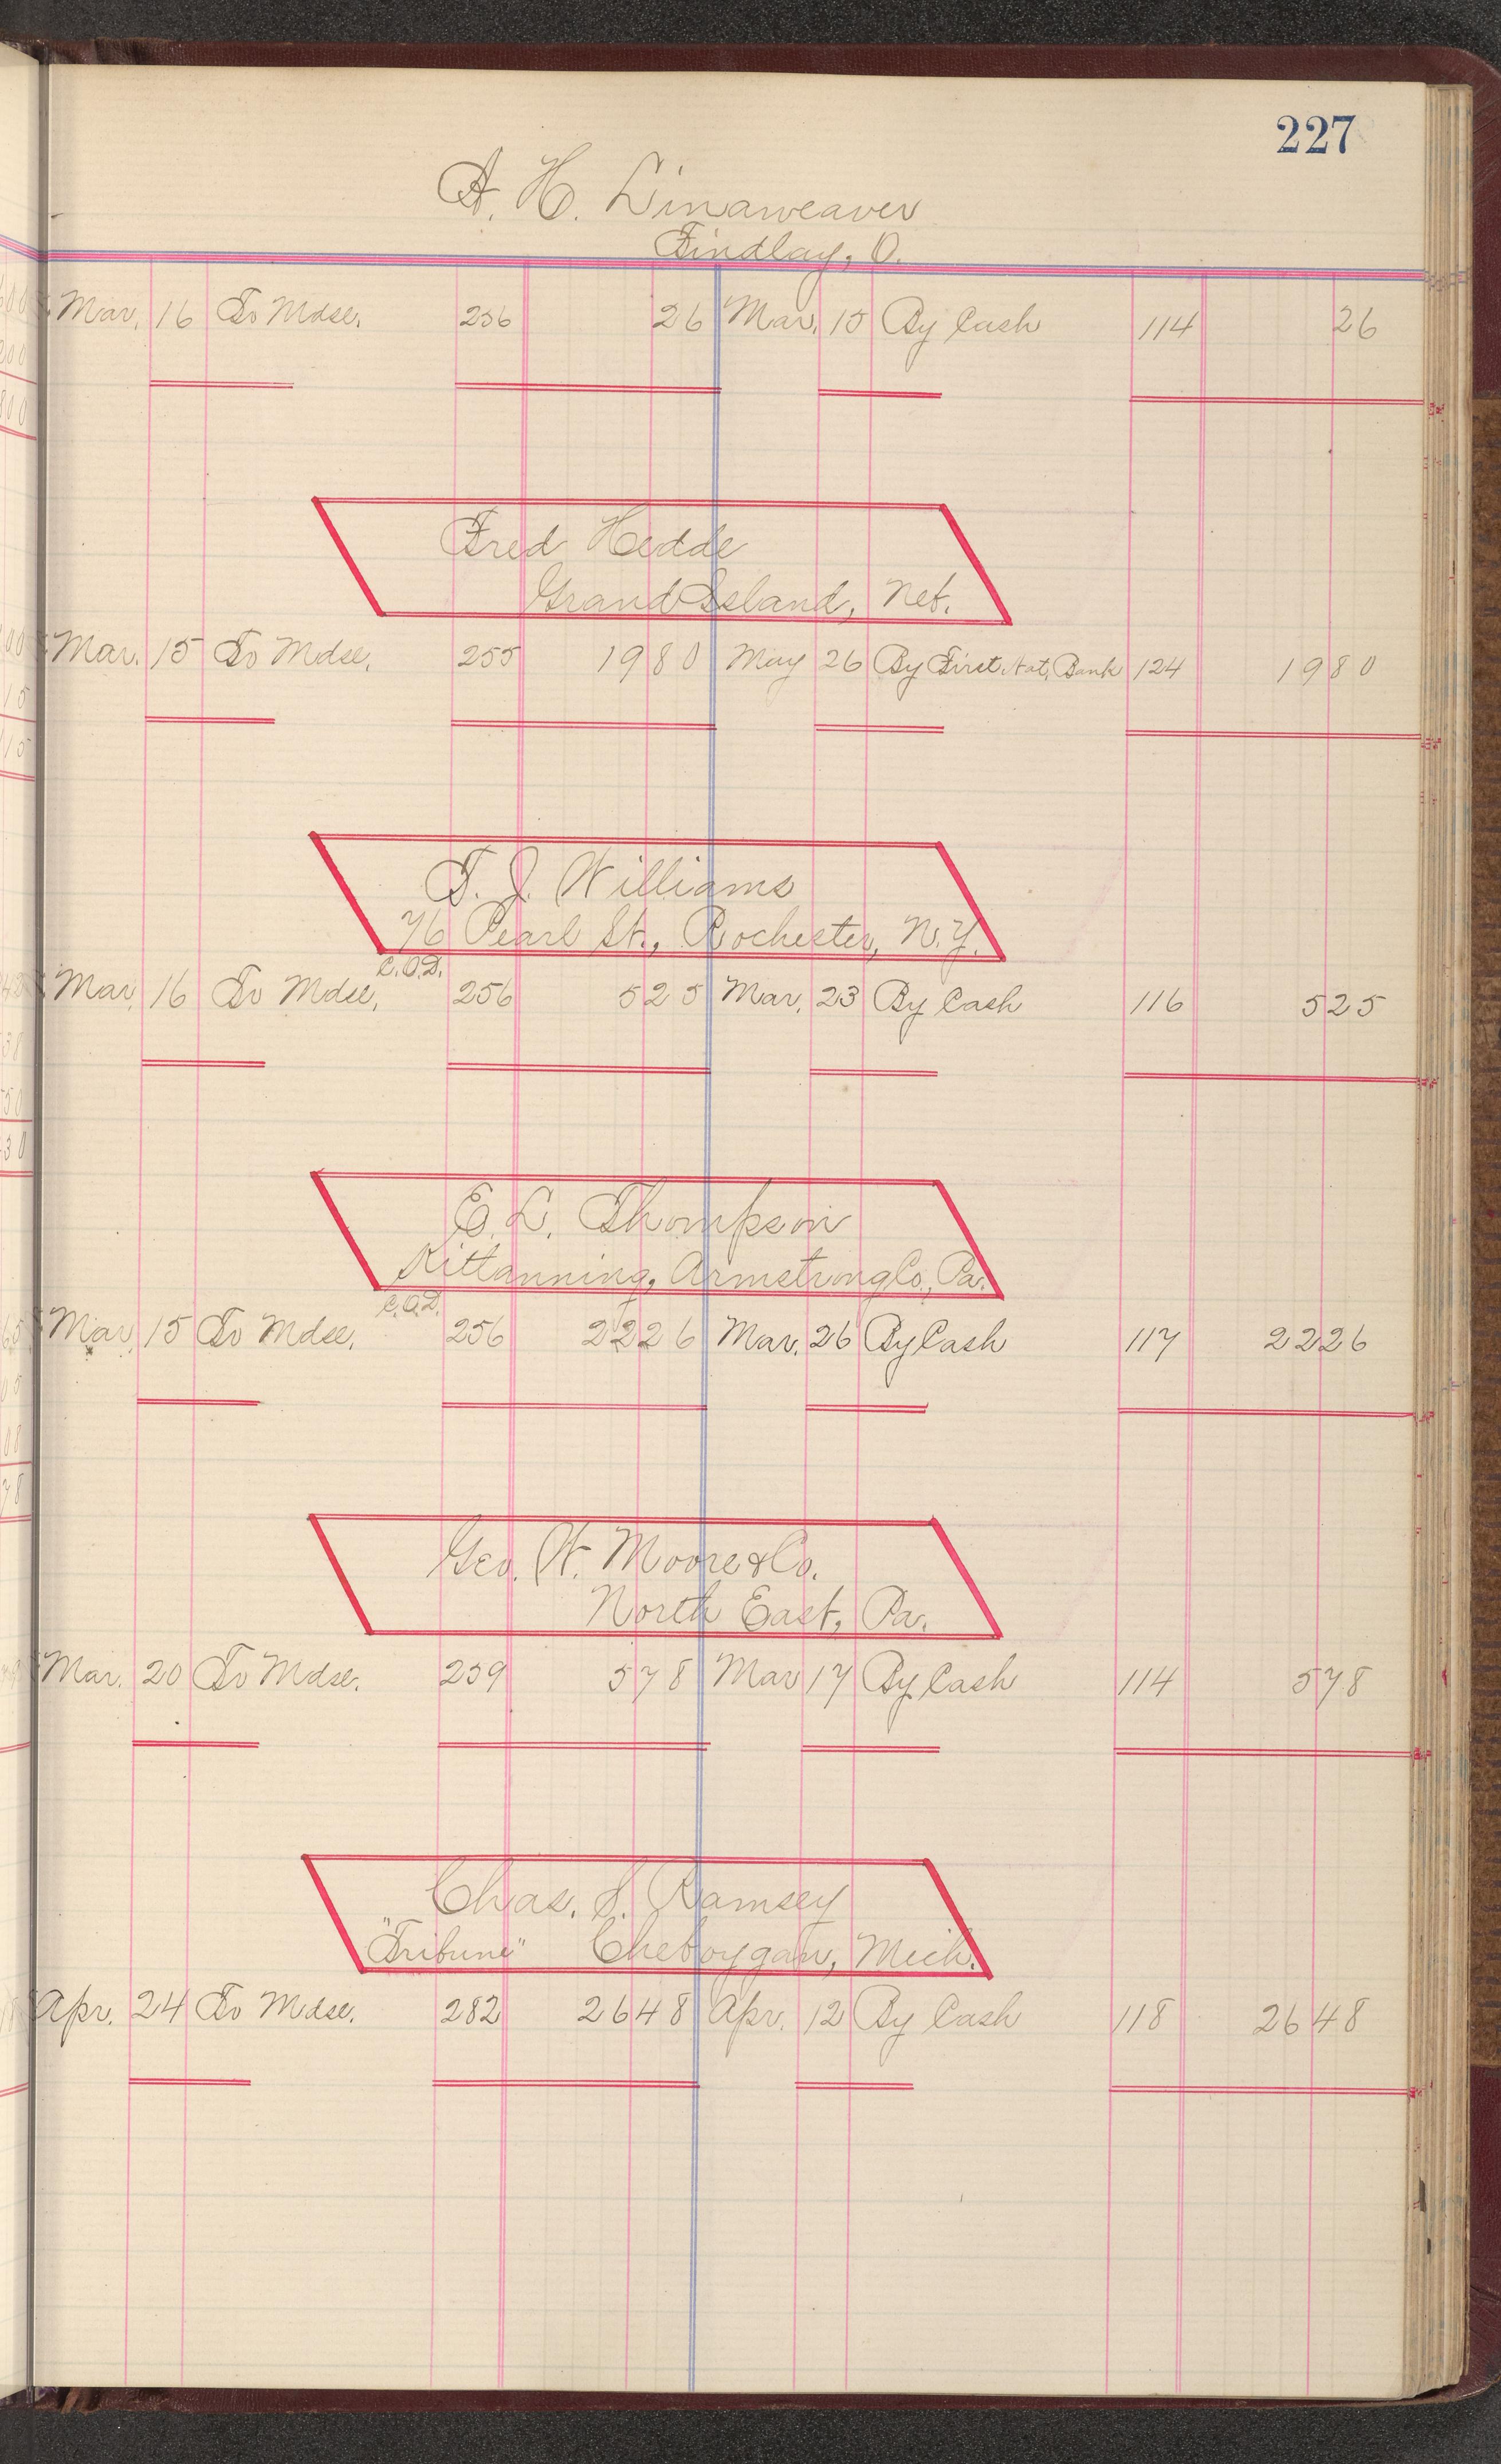 227
A. H. Linaweaver
Findlay, O.
Mar. 16 To Mdse. 256 26 Mar. 15 By Cash 114 26
Fred Hedde
Grand Island, Neb.
Mar. 15 To Mdse. 255 1980 May 26 By First Nat. Bank 124 1980
T. J. Williams
76 Pearl St., Rochester, N.Y.
C.O.D.
Mar. 16 To Mdse. 256 525 Mar. 23 By Cash 116 525
E. L. Thompson
Kittanning, Armstrong Co., Pa.
C.O.D.
Mar. 15 To Mdse. 256 2226 Mar. 26 By Cash 117 2226
Geo. W. Moore & Co.
North East, Pa.
Mar. 20 To Mdse. 259 578 Mar 17 By Cash 114 578
Chas. S. Ramsey
"Tribune" Cheboygan, Mich.
Apr. 24 To Mdse. 282 2648 Apr. 12 By Cash 118 2648